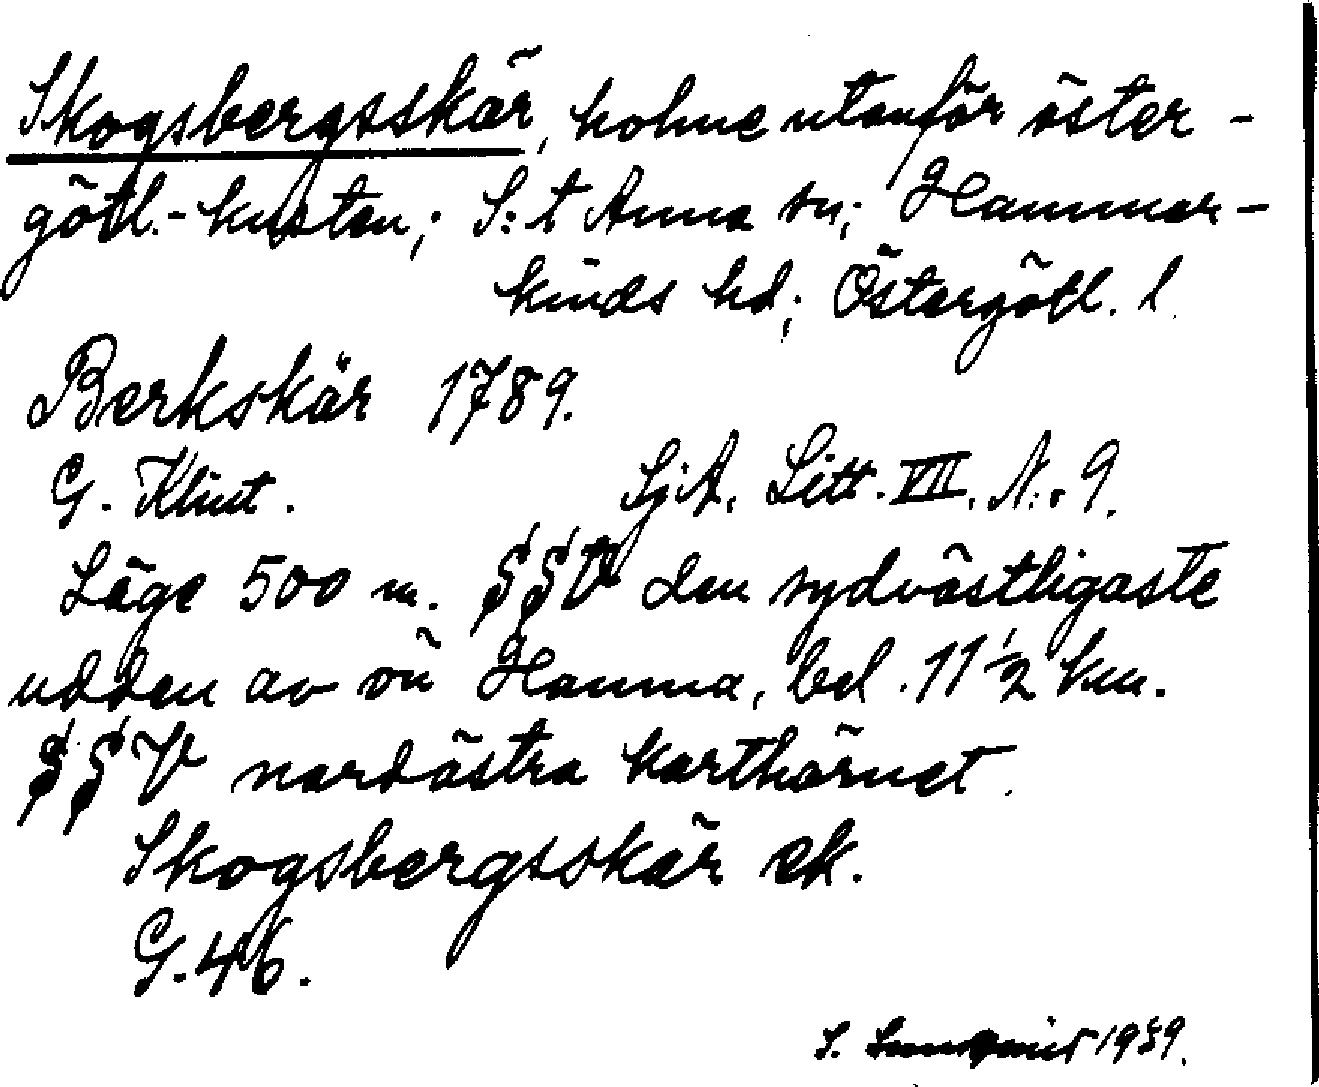 Skogsbergsskär, holme utanför öster-
götl.-kusten; S:t Anna sn; Hammar-
kinds hd; Östergötl. l.
Berkskär 1789.
G. Klint. SjA. Litt. VII. N:r 9.
Läge 500 m. SSV den sydvästligaste
udden av ön Hanma, bel. 11 1/2 km.
SSV nordöstra karthörnet.
Skogsbergsskär ek.
G. 46.
S. 1959.